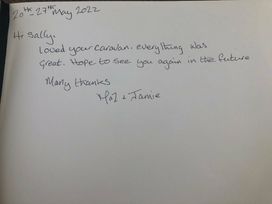 20th - 27th May 2022
Hi Sally,
Loved your caravan. everything was
great. Hope to see you again in the future
Many thanks
+ Jamie